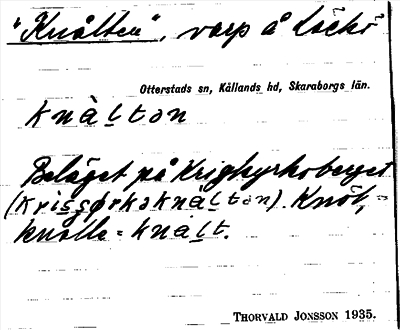 "Knålten", varp å Läckö
Otterstads sn, Kållands hd, Skaraborgs län.
knàḻtən
Beläget på Krigkyrkoberget
(kris̱s̱ørkəknàḻtən). Knöl,=
knålle = knàḻt.
THORVALD JONSSON 1935.